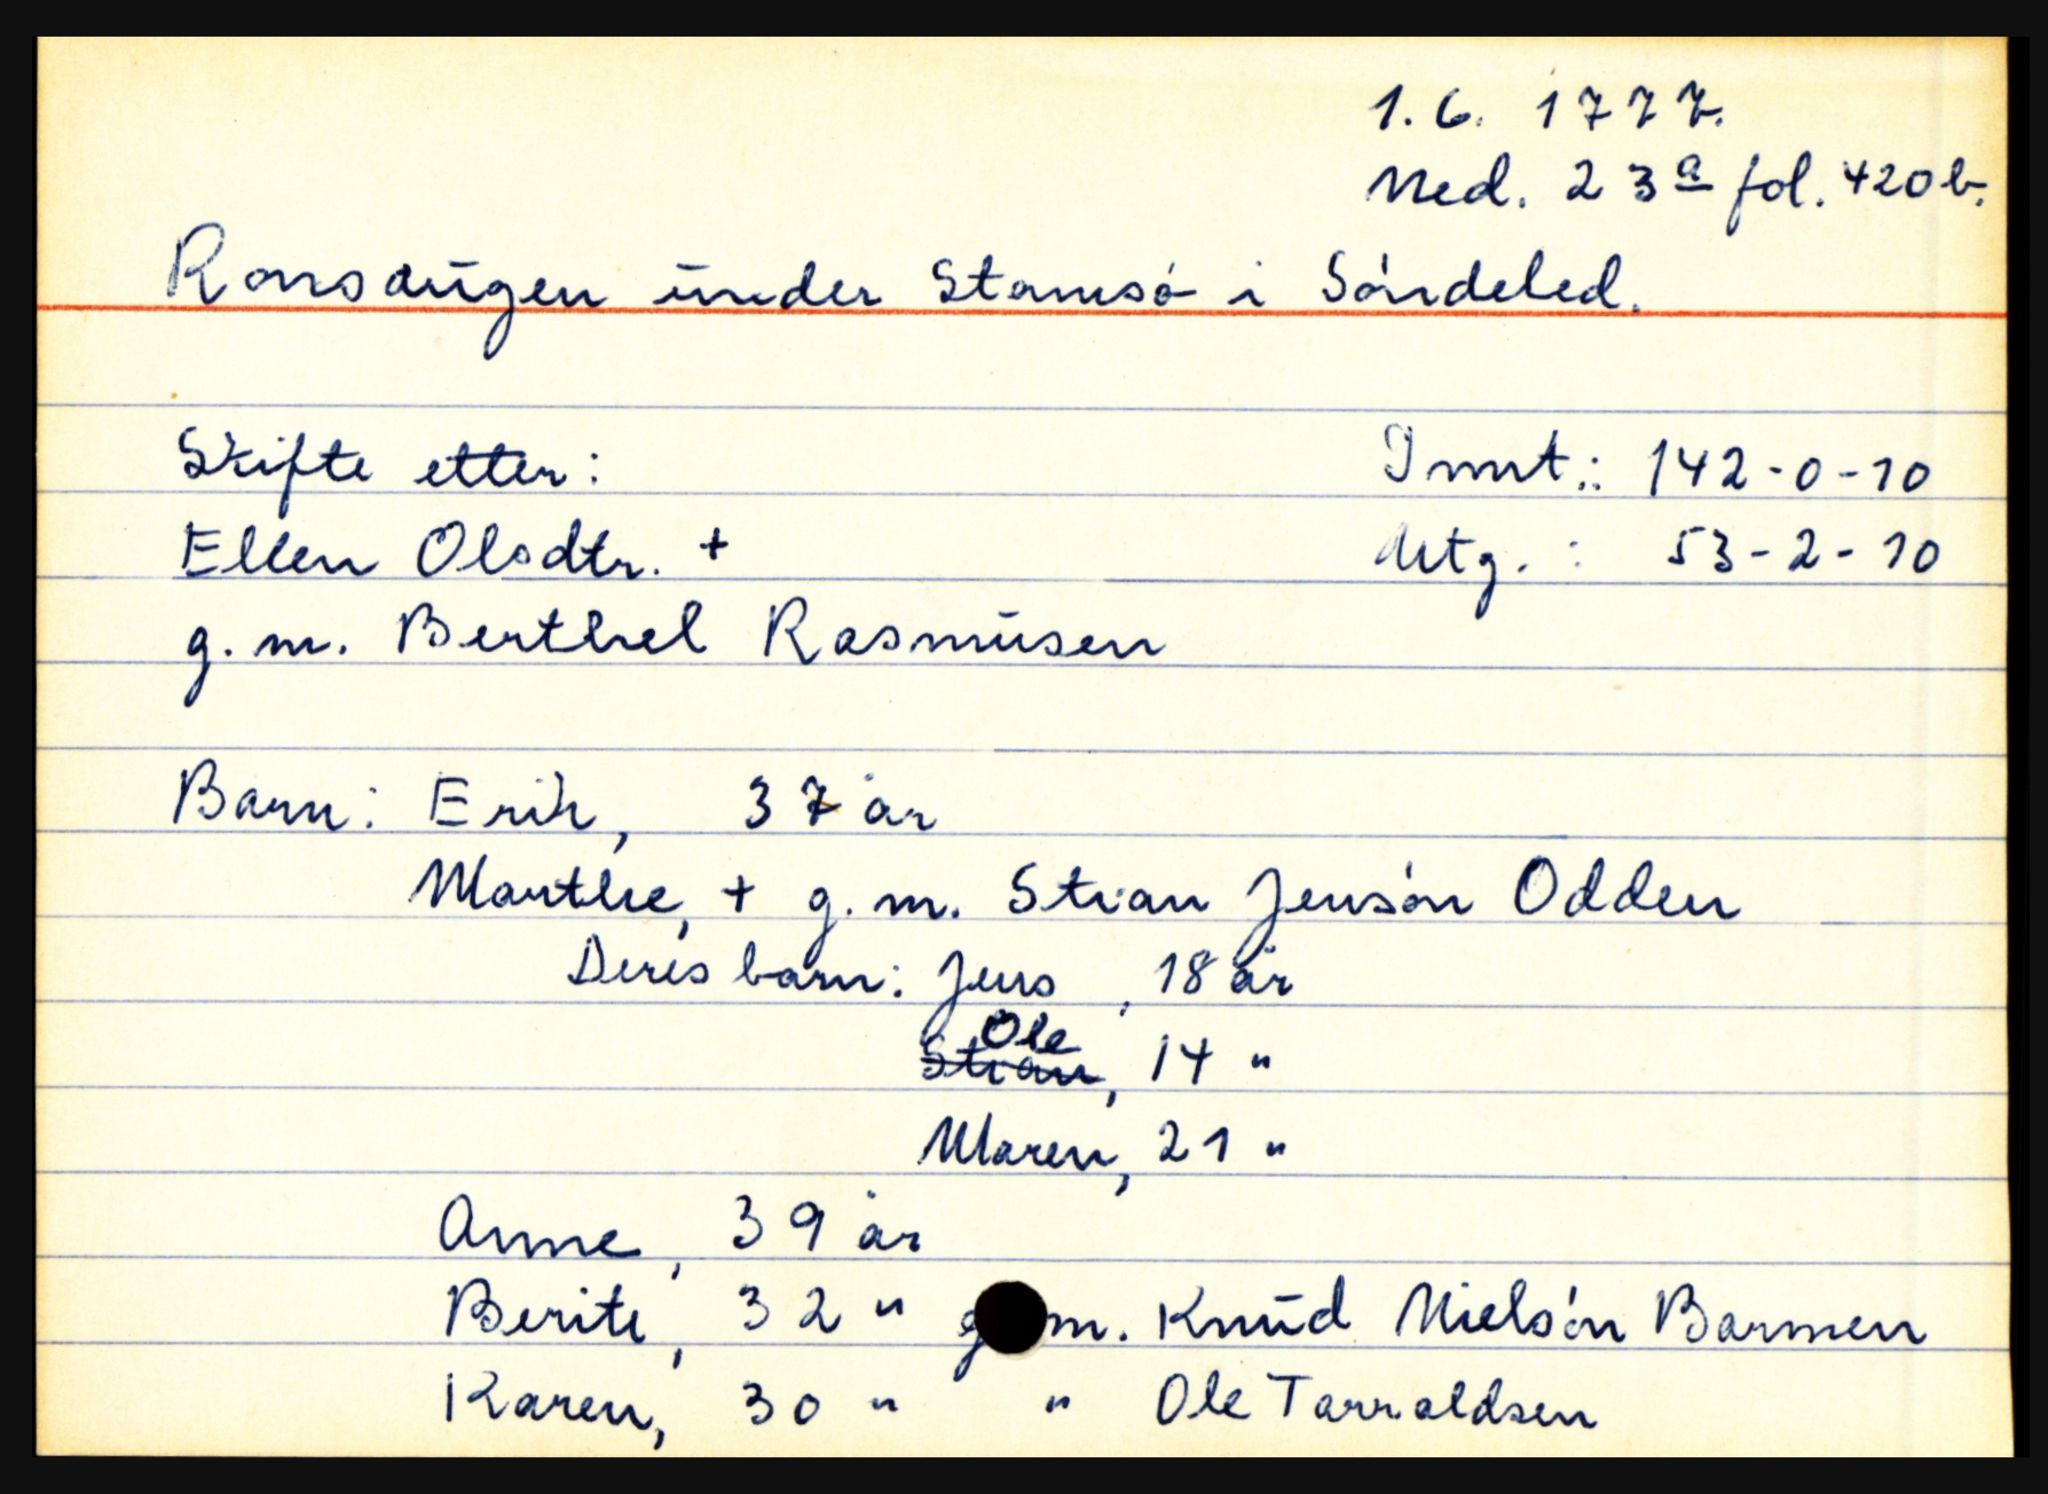 1.6. 1777.
Ned. 23a fol. 420b.
Ransaugen under Stamsø i Søndeled.
Skifte etter:
Innt.: 142-0-10
Ellen Olsdtr. +
Utg. : 53-2-10
g.m. Berthel Rasmusen
Barn: Erik, 37 år
Marthe, + g.m. Stian Jensøn Odden
Deres barn: Jens, 18 år
Ole
Stian, 14 "
Maren, 21 "
Anne, 39 år
Berite, 32 " g.m. Knud Nielsøn Barmen
Karen, 30 " " Ole Tarraldsen